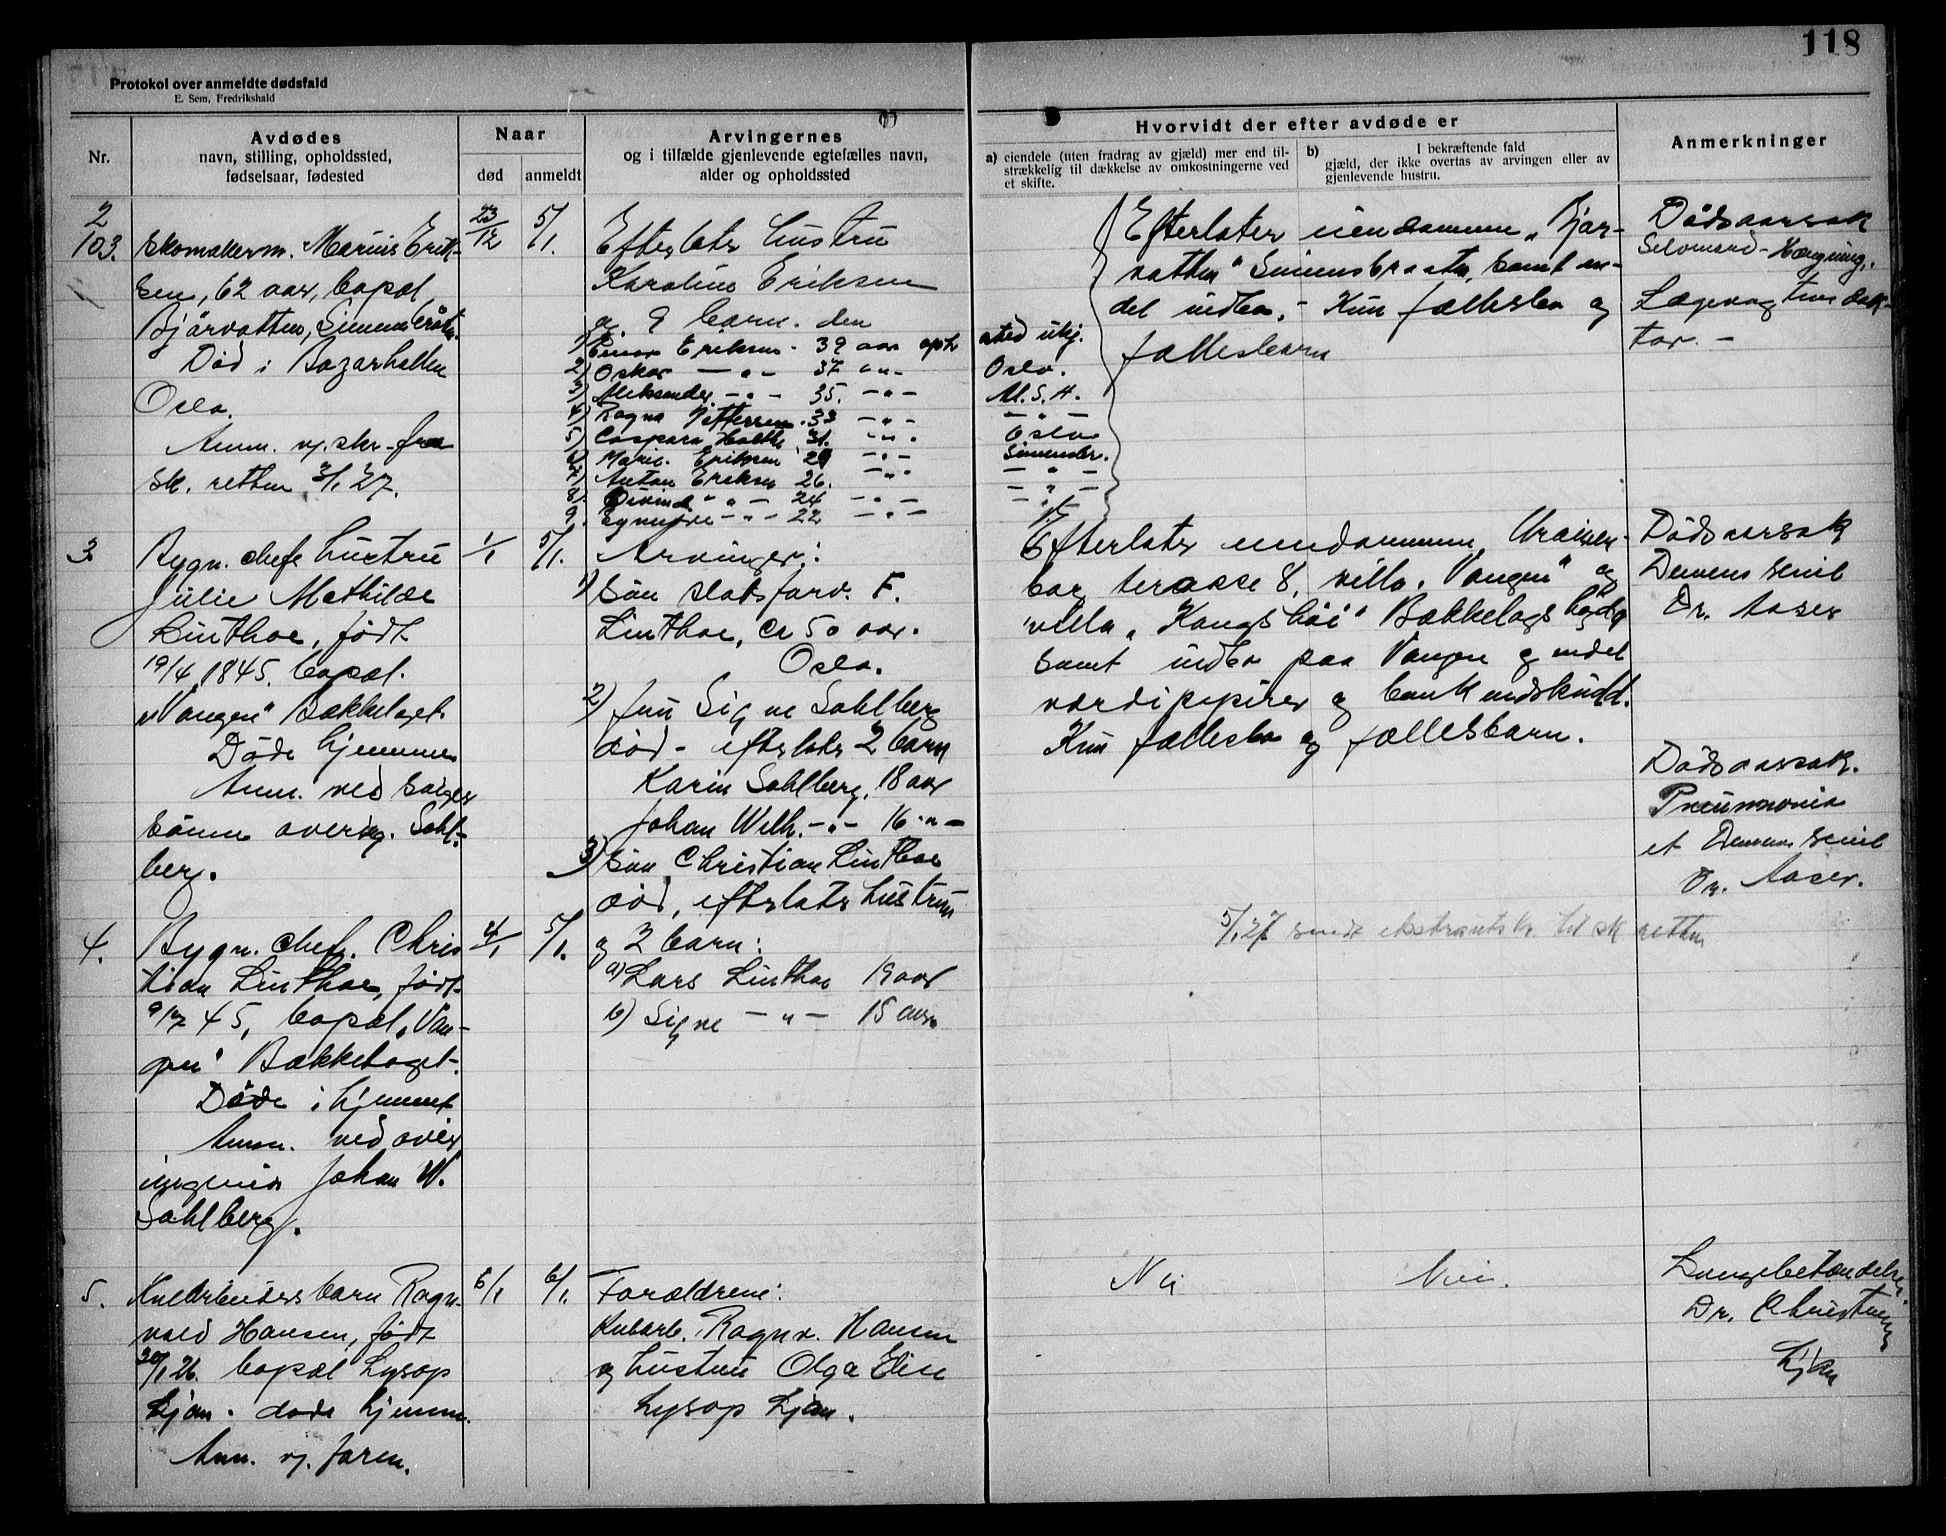 118
Protokol over anmeldte dødsfald
E. Sem, Fredrikshald
Nr.
Avdødes
navn, stilling, opholdssted,
fødselsaar, fødested
Naar
død
anmeldt
Arvingernes
og i tilfælde gjenlevende egtefælles navn,
alder og opholdssted
Hvorvidt der efter avdøde er
a) eiendele (uten fradrag av gjæld) mer end til-
strækkelig til dækkelse av omkostningerne ved
et skifte.
b) I bekræftende fald
gjæld, der ikke overtas av arvingen eller av
gjenlevende hustru.
Anmerkninger
2
103.
Skomakerm. Marius Erik-
sen, 62 aar, bopæl
Bjårvatten, Simensbråten.
Død i Bazarhallen
Oslo.
Anm. vj. skr. fra
sk. retten 3/1 27.
23/12
5/1.
Efterlater hustru
Karoline Eriksen
og 9 barn. den
1) Einar Eriksen - 39 aar oph
2) Oskar — " — 37 — " —
3) Aleksander — " — 35. — " —
4) Ragna Pettersen. 33 — " —
5) Caspara Holth 31. — " —
6) Marie Eriksen 29 — " —
7) Anton Eriksen 26. — " —
8) Øivind — " — 24 — " —
9. — " — 22 — " —
sted ukj.
Oslo.
U.S.A.
— " —
Oslo
Simensbr.
— " —
— " —
— " —
Efterlater eiendommen "Bjår-
vatten" Simensbraaten samt en-
del indbo. - Kun fællesbo og
fællesbarn
Dødsaarsak
Selvmord - Hængning.
Lægevagtens dok-
tor. -
3.
Bygn. chefs hustru
Julie Mathilde
Linthoe, født
19/4 1845. bopæl.
"Vangen" Bækkelaget.
Døde hjemme
Anm. ved sviger
sønn overing. Sahl-
berg.
1/1
5/1.
Arvinger:
1) Søn slotsforv. F.
Linthoe, ca 50 aar.
Oslo.
2) Fru Signe Sahlberg
død - efterlater 2 barn
Karin Sahlberg, 18 aar
Johan Wilh. — " — 16 — " —
3) Søn Christian Linthoe
død, efterlater hustru
og 2 barn:
a) Lars Linthoe 19 aar
b) Signe — " — 15 aar
Efterlater eiendommene Uranien-
borg terasse 8, villa "Vangen" og
villa "Kongshøi" Bækkelagshøgda
samt indbo paa Vangen og endel
værdipapirer og bankindskudd.
Kun fællesbo og fællesbarn.
Dødsaarsak
Demens senil
Dr. Aaser
4.
Bygn. chef. Chris
tian Linthoe, født
45, bopæl "Van-
gen" Bækkelaget.
Døde i hjemmet
Anm. ved over
ingeniør Johan W.
Sahlberg.
4/1
5/1.
Dødsaarsak.
Pneumonia
et Demens senil
Dr. Aaser.
5/1 27 sendt ekstrautskr. til sk retten
5.
Kullarbeiders barn Ragn-
vald Hansen, født
26. bopæl Lysop
Ljan. døde hjemme.
Anm. vj. faren.
6/1
6/1.
Forældrene:
Kullarb. Ragnv. Hansen
og hustru Olga Elise
Lysop Ljan.
Nei
Nei.
Lungebetændelse.
Dr. Christensen
Ljan